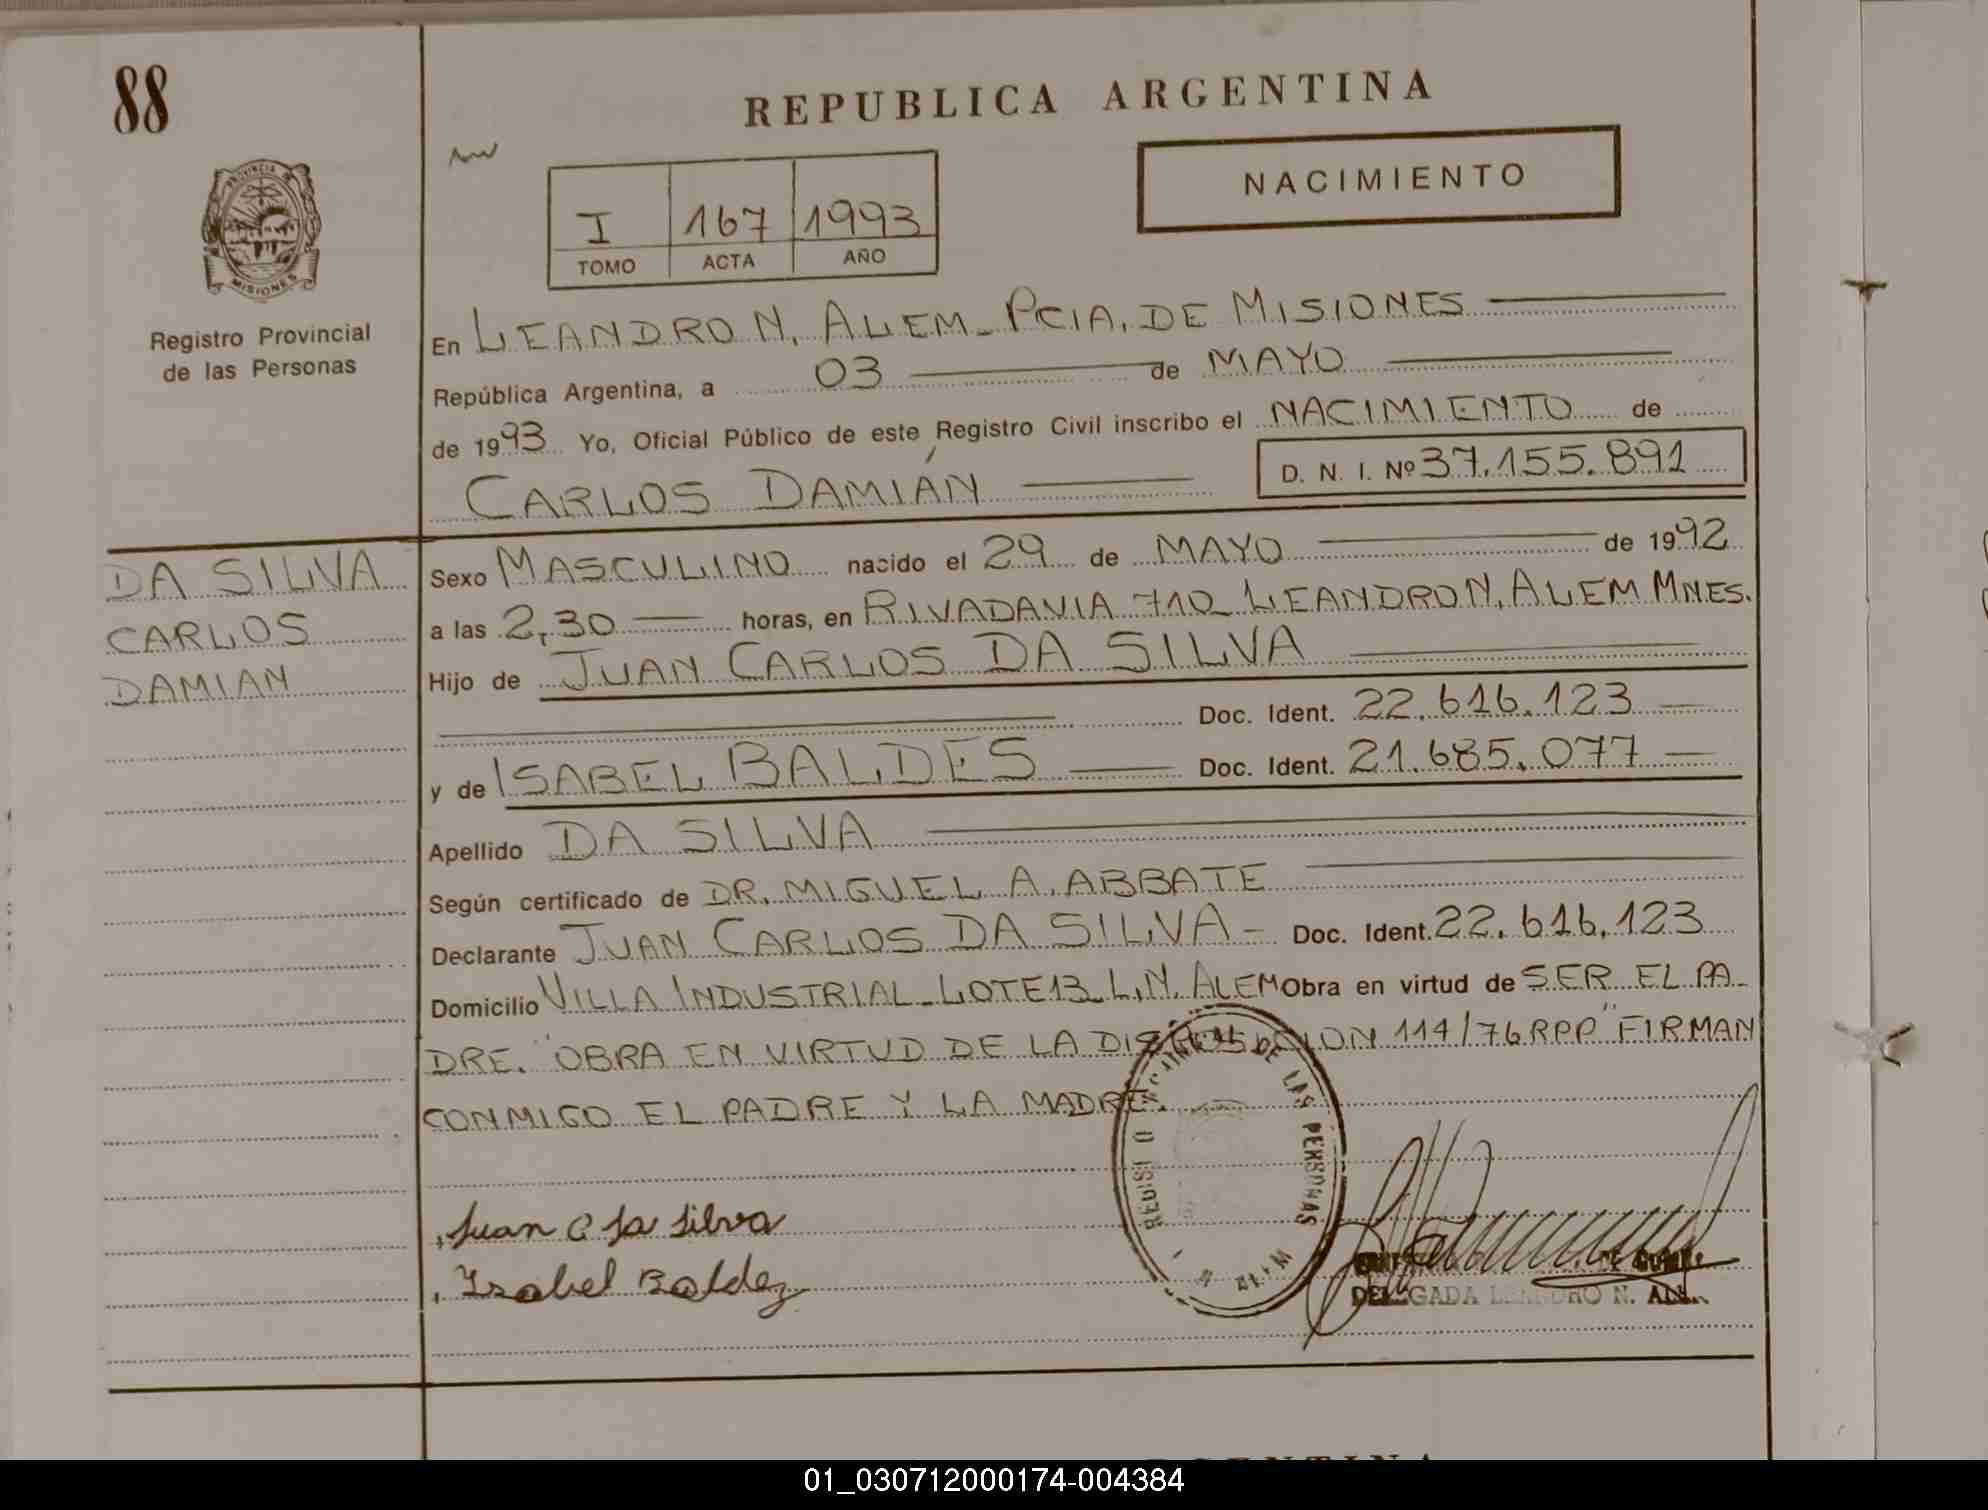 88
REPUBLICA ARGENTINA
NACIMIENTO
I 167 1993
TOMO ACTA AÑO
PROVINCIA DE
MISIONES
Registro Provincial
de las Personas
En LEANDRO N. ALEM - PCIA. DE MISIONES
República Argentina, a 03 de MAYO
de 1993 Yo, Oficial Público de este Registro Civil inscribo el NACIMIENTO de
CARLOS DAMIÁN D. N. I. Nº 37.155.891
DA SILVA
CARLOS
DAMIAN
Sexo MASCULINO nacido el 29 de MAYO de 1992
a las 2,30 horas, en RIVADAVIA 710 LEANDRO N. ALEM MNES.
Hijo de JUAN CARLOS DA SILVA
Doc. Ident. 22.616.123
y de ISABEL BALDES Doc. Ident. 21.685.077
Apellido DA SILVA
Según certificado de DR. MIGUEL A. ABBATE
Declarante JUAN CARLOS DA SILVA - Doc. Ident. 22.616.123
Domicilio VILLA INDUSTRIAL - LOTE 13 L.N. ALEM Obra en virtud de SER EL PA-
DRE. "OBRA EN VIRTUD DE LA DISPOSICION 114/76 RPP" FIRMAN
CONMIGO EL PADRE Y LA MADRE.
DE LAS PERSONAS
Juan C Da Silva
Isabel Baldez
LEANDRO N. AL
ARGENTINA
01_030712000174-004384